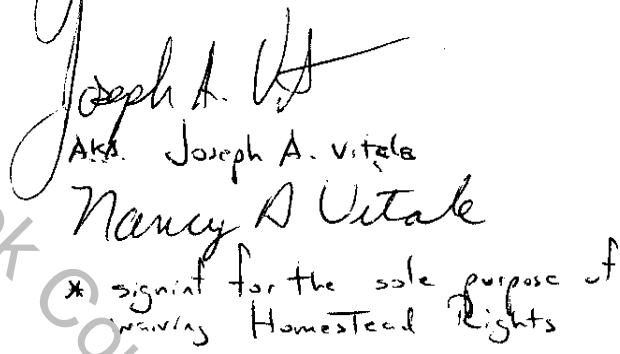 Joseph A. Vit
AKA. Joseph A. Vitale
Nancy A Vitale
* signint for the sole purpose of
waiving Homestead Rights
k Cou